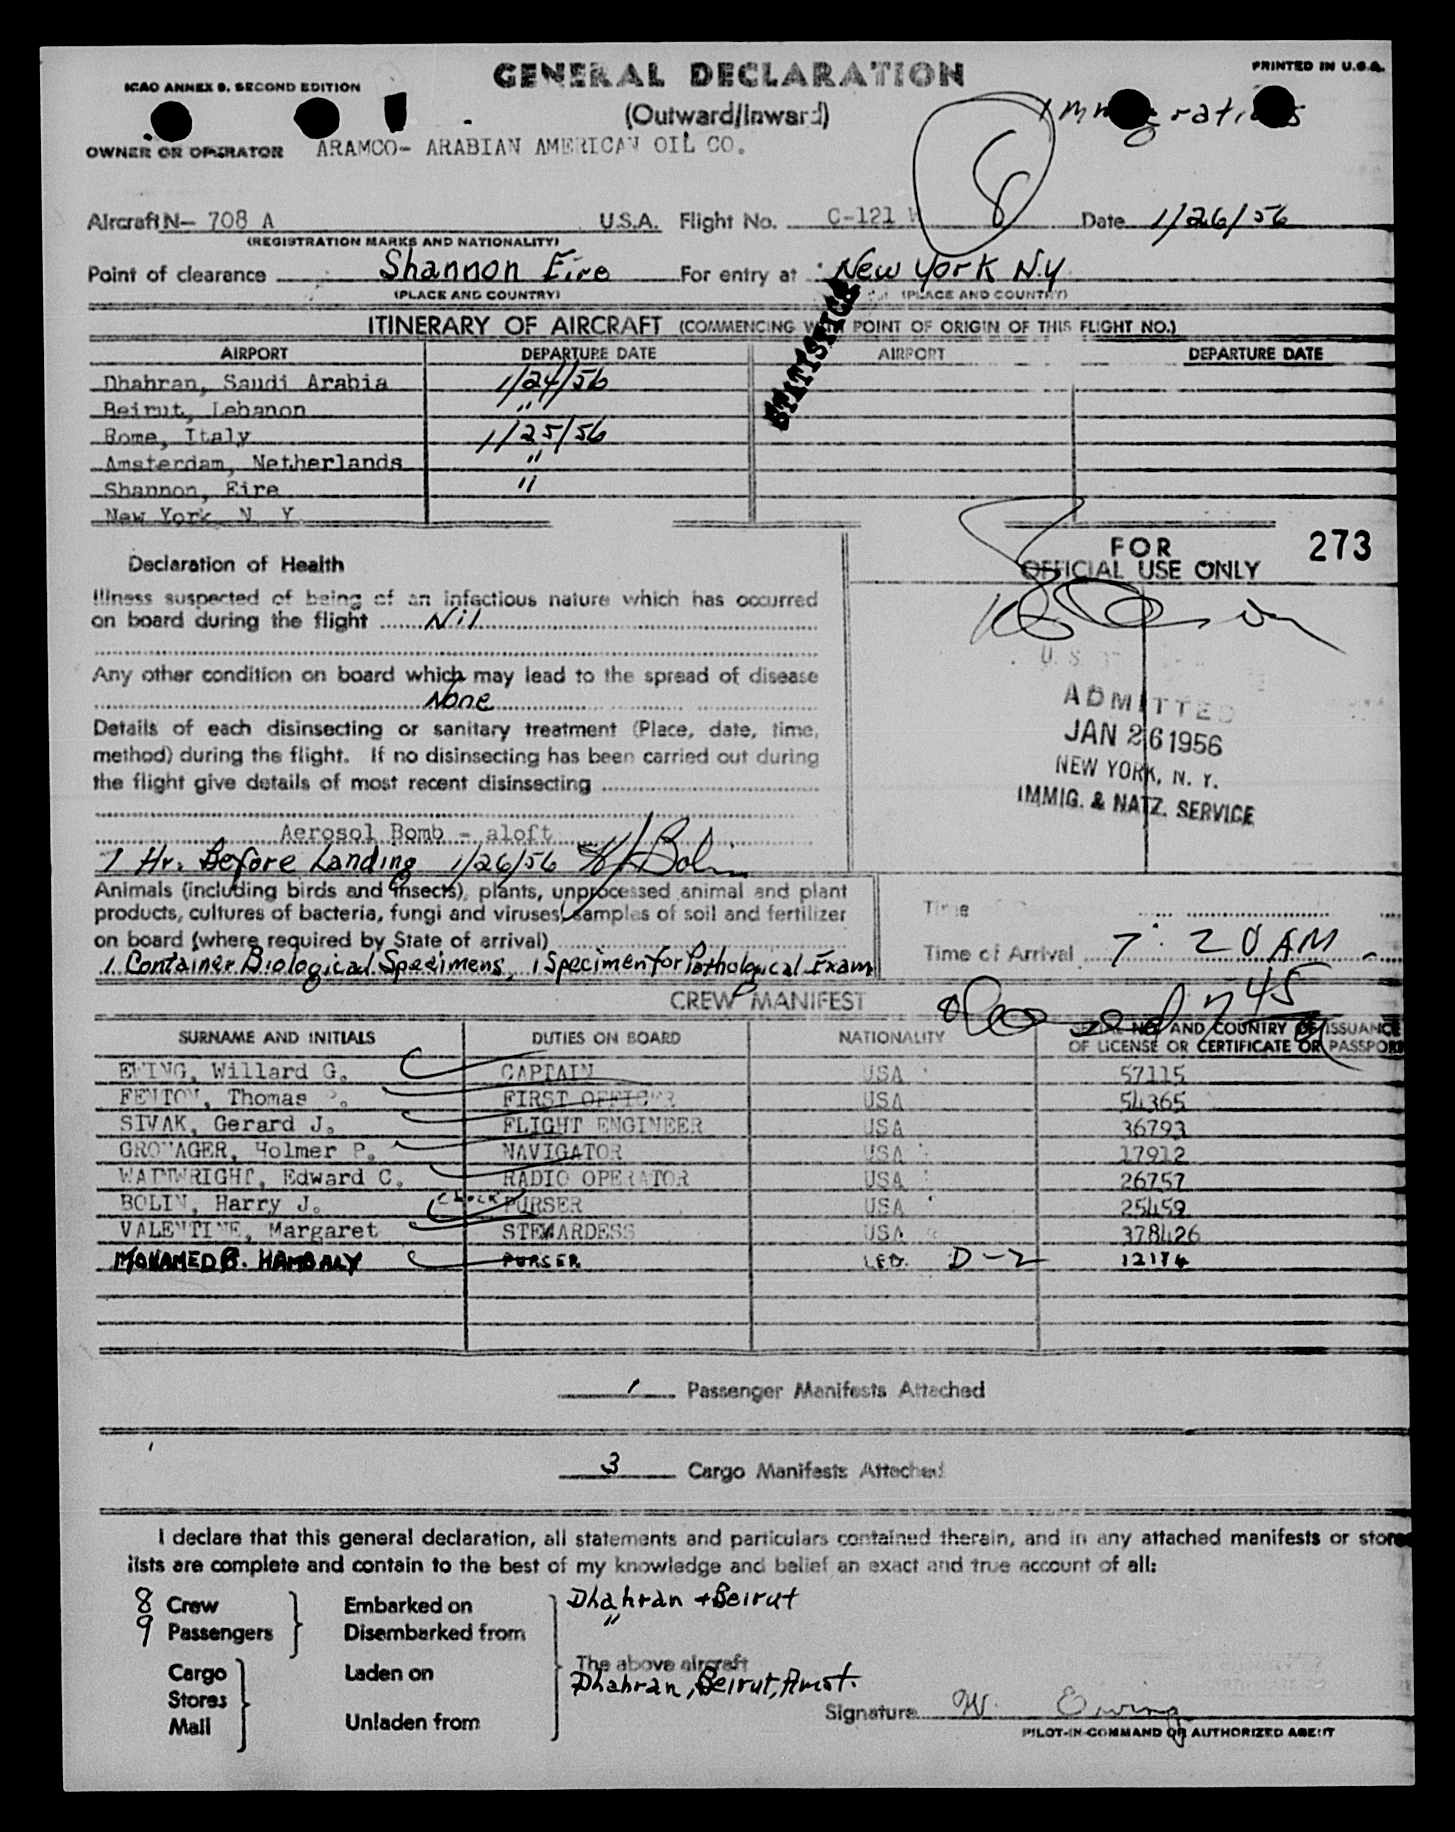 GENERAL DECLARATION
PRINTED IN U.S.A.
ICAO ANNEX 9, SECOND EDITION
(Outward/Inward)
Immigrations
8
OWNER OR OPERATOR ARAMCO- ARABIAN AMERICAN OIL CO.
Aircraft N- 708 A U.S.A. Flight No. C-121 Date 1/26/56
(REGISTRATION MARKS AND NATIONALITY)
Point of clearance Shannon Eire For entry at New York N.Y
(PLACE AND COUNTRY) (PLACE AND COUNTRY)
STATISTICS
ITINERARY OF AIRCRAFT (COMMENCING WITH POINT OF ORIGIN OF THIS FLIGHT NO.)
AIRPORT DEPARTURE DATE AIRPORT DEPARTURE DATE
Dhahran, Saudi Arabia 1/24/56
Beirut, Lebanon "
Rome, Italy 1/25/56
Amsterdam, Netherlands "
Shannon, Eire "
New York N Y
FOR
OFFICIAL USE ONLY
273
Declaration of Health
Illness suspected of being of an infectious nature which has occurred
on board during the flight Nil
Any other condition on board which may lead to the spread of disease
None
Details of each disinsecting or sanitary treatment (Place, date, time,
method) during the flight. If no disinsecting has been carried out during
the flight give details of most recent disinsecting
Aerosol Bomb - aloft
1 Hr. Before Landing 1/26/56 Bolin
U. S.
ADMITTED
JAN 26 1956
NEW YORK, N. Y.
IMMIG. & NATZ. SERVICE
Animals (including birds and insects), plants, unprocessed animal and plant
products, cultures of bacteria, fungi and viruses, samples of soil and fertilizer
on board (where required by State of arrival)
1 Container Biological Specimens, 1 Specimen for Pathological Exam
Time
Time of Arrival 7:20 AM
7 45
CREW MANIFEST
SURNAME AND INITIALS DUTIES ON BOARD NATIONALITY NO. AND COUNTRY OF ISSUANCE
OF LICENSE OR CERTIFICATE OR PASSPORT
EWING, Willard G. CAPTAIN USA 57115
FENTON, Thomas FIRST OFFICER USA 54365
SIVAK, Gerard J. FLIGHT ENGINEER USA 36793
GRONAGER, Holmer P. NAVIGATOR USA 17912
WAINWRIGHT, Edward C. RADIO OPERATOR USA 26757
BOLIN, Harry J. Check PURSER USA 25459
VALENTINE, Margaret STEWARDESS USA 378426
MOHAMED B. HAMBALY PURSER LEB. D-2 12174
1 Passenger Manifests Attached
3 Cargo Manifests Attached
I declare that this general declaration, all statements and particulars contained therein, and in any attached manifests or stores
lists are complete and contain to the best of my knowledge and belief an exact and true account of all:
8 Crew Embarked on Dhahran + Beirut
9 Passengers Disembarked from "
The above aircraft
Cargo Laden on Dhahran, Beirut, Amst.
Stores
Mail Unladen from
Signature W. Ewing
PILOT-IN-COMMAND OR AUTHORIZED AGENT